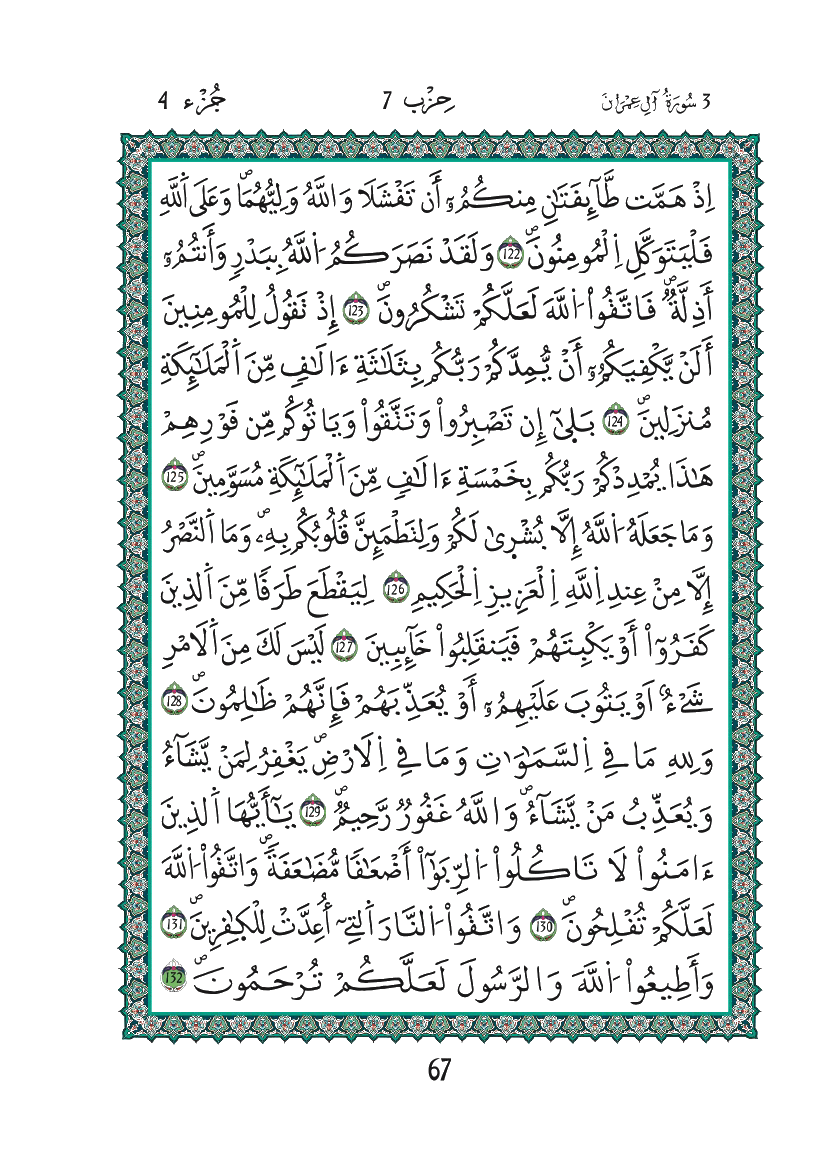 3 سُورَةُ آلِ عِمْرَانَ
حِزْب 7
جُزْء 4
اِذْ هَمَّت طَّآئِفَتَٰنِ مِنكُمُۥٓ أَن تَفْشَلَا وَاللَّهُ وَلِيُّهُمَاۖ وَعَلَى اَللَّهِ
فَلْيَتَوَكَّلِ اِلْمُومِنُونَۖ 122 وَلَقَدْ نَصَرَكُمُ اَللَّهُ بِبَدْرٍ وَأَنتُمُۥٓ
أَذِلَّةٌۖ فَاتَّقُواْ اَللَّهَ لَعَلَّكُمْ تَشْكُرُونَۖ 123 إِذْ تَقُولُ لِلْمُومِنِينَ
أَلَنْ يَّكْفِيَكُمُۥٓ أَنْ يُّمِدَّكُمْ رَبُّكُم بِثَلَٰثَةِ ءَالَٰفٖ مِّنَ اَلْمَلَٰٓئِكَةِ
مُنزَلِينَۖ 124 بَلَىٰٓ إِن تَصْبِرُواْ وَتَتَّقُواْ وَيَاتُوكُم مِّن فَوْرِهِمْ
هَٰذَا يُمْدِدْكُمْ رَبُّكُم بِخَمْسَةِ ءَالَٰفٖ مِّنَ اَلْمَلَٰٓئِكَةِ مُسَوَّمِينَۖ 125
وَمَا جَعَلَهُ اُللَّهُ إِلَّا بُشْرَىٰ لَكُمْ وَلِتَطْمَئِنَّ قُلُوبُكُم بِهِۦۖ وَمَا اَلنَّصْرُ
إِلَّا مِنْ عِندِ اِللَّهِ اِلْعَزِيزِ اِلْحَكِيمِ 126 لِيَقْطَعَ طَرَفاٗ مِّنَ اَلذِينَ
كَفَرُوٓاْ أَوْ يَكْبِتَهُمْ فَيَنقَلِبُواْ خَآئِبِينَ 127 لَيْسَ لَكَ مِنَ اَلَامْرِ
شَےْءٌ اَوْ يَتُوبَ عَلَيْهِمُۥٓ أَوْ يُعَذِّبَهُمْ فَإِنَّهُمْ ظَٰلِمُونَۖ 128
وَلِلهِ مَا فِے اِلسَّمَٰوَٰتِ وَمَا فِے اِلَارْضِۖ يَغْفِرُ لِمَنْ يَّشَآءُ
وَيُعَذِّبُ مَنْ يَّشَآءُۖ وَاللَّهُ غَفُورٌ رَّحِيمٌۖ 129 يَٰٓأَيُّهَا اَلذِينَ
ءَامَنُواْ لَا تَاكُلُواْ اُلرِّبَوٰٓاْ أَضْعَٰفاٗ مُّضَٰعَفَةٗۖ وَاتَّقُواْ اُللَّهَ
لَعَلَّكُمْ تُفْلِحُونَۖ 130 وَاتَّقُواْ اُلنَّارَ اَلتِےٓ أُعِدَّتْ لِلْكٰفِرِينَۖ 131
وَأَطِيعُواْ اُللَّهَ وَالرَّسُولَ لَعَلَّكُمْ تُرْحَمُونَۖ 132
67